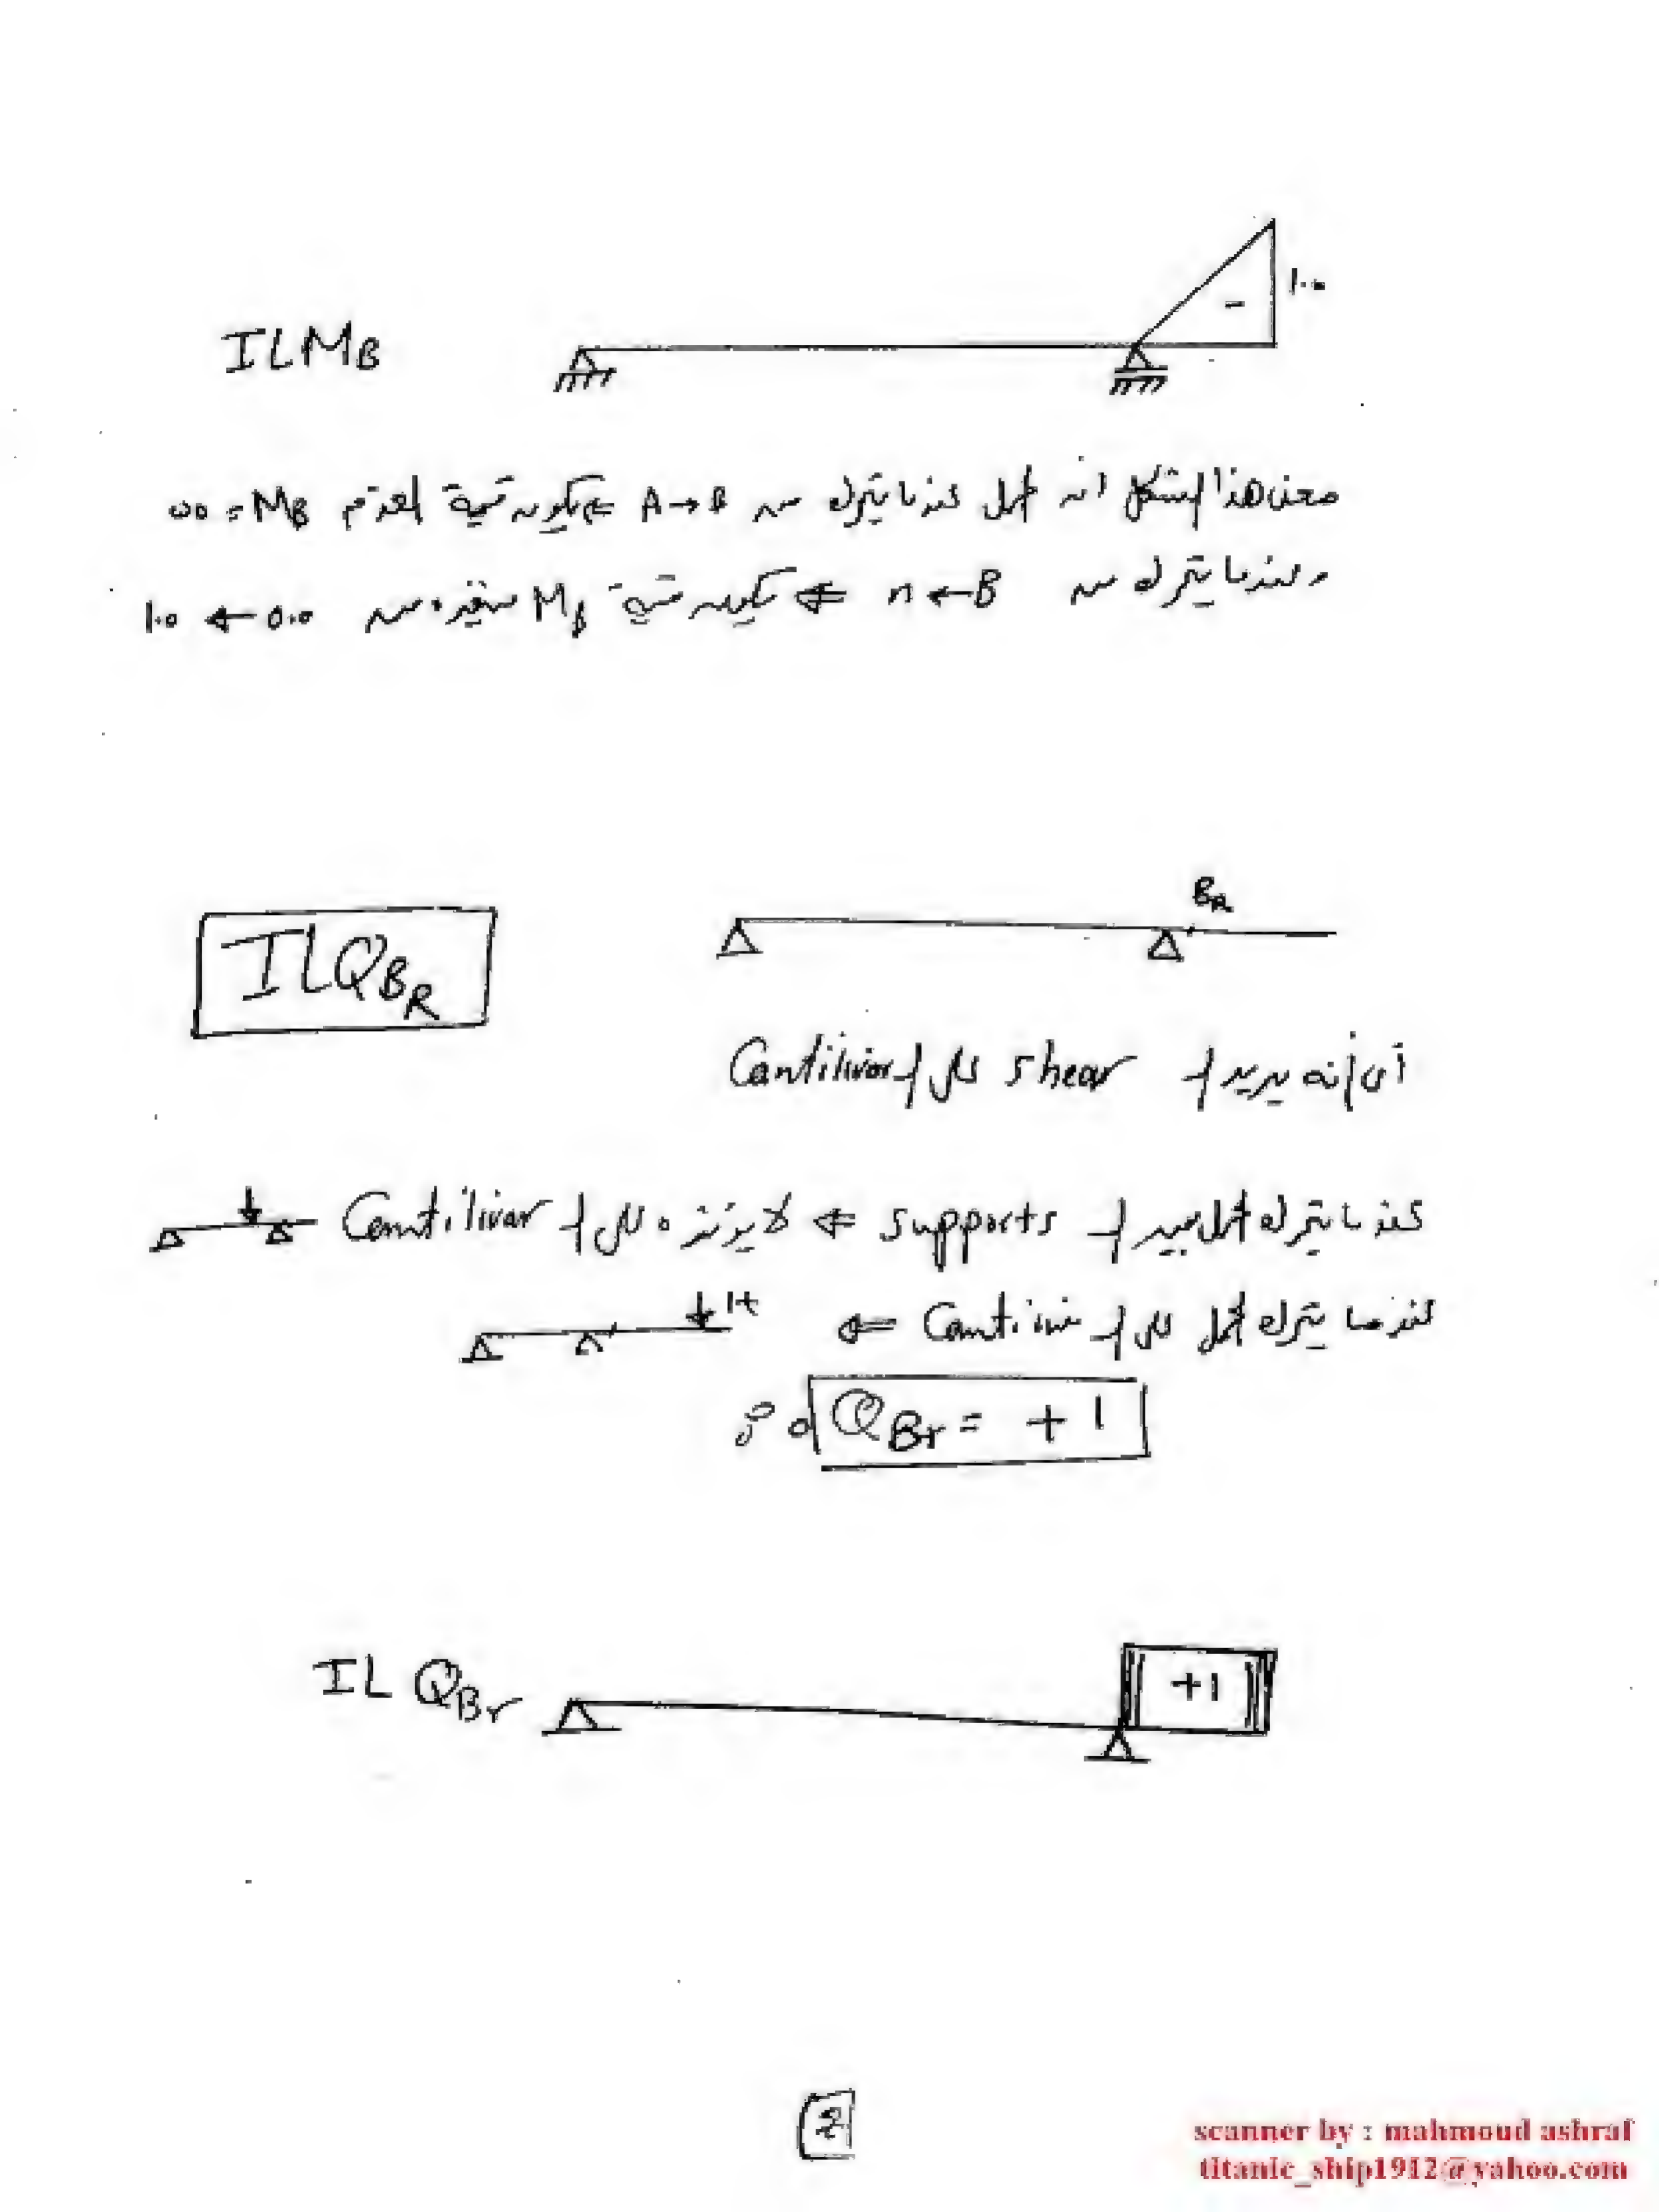 1.0
-
ILMB
معنى هذا الشكل انه الحمل عندما يتحرك من A→B ⇐ تكون قيمة العزم MB = 0.0
وعندما يتحرك من n ← B ⇐ تكون قيمة MB متغيره من 0.0 ← 1.0
BR
ILQBR
أى انه يريد الـ shear على الـ Cantiliver
عندما يتحرك الحمل بين الـ supports ⇐ لا يؤثر على الـ Cantiliver
عندما يتحرك الحمل على الـ ⇐ 1t
QBr = +1
+1
IL QBr
2
scanner by : mahmoud ashraf
titanic_ship1912@yahoo.com